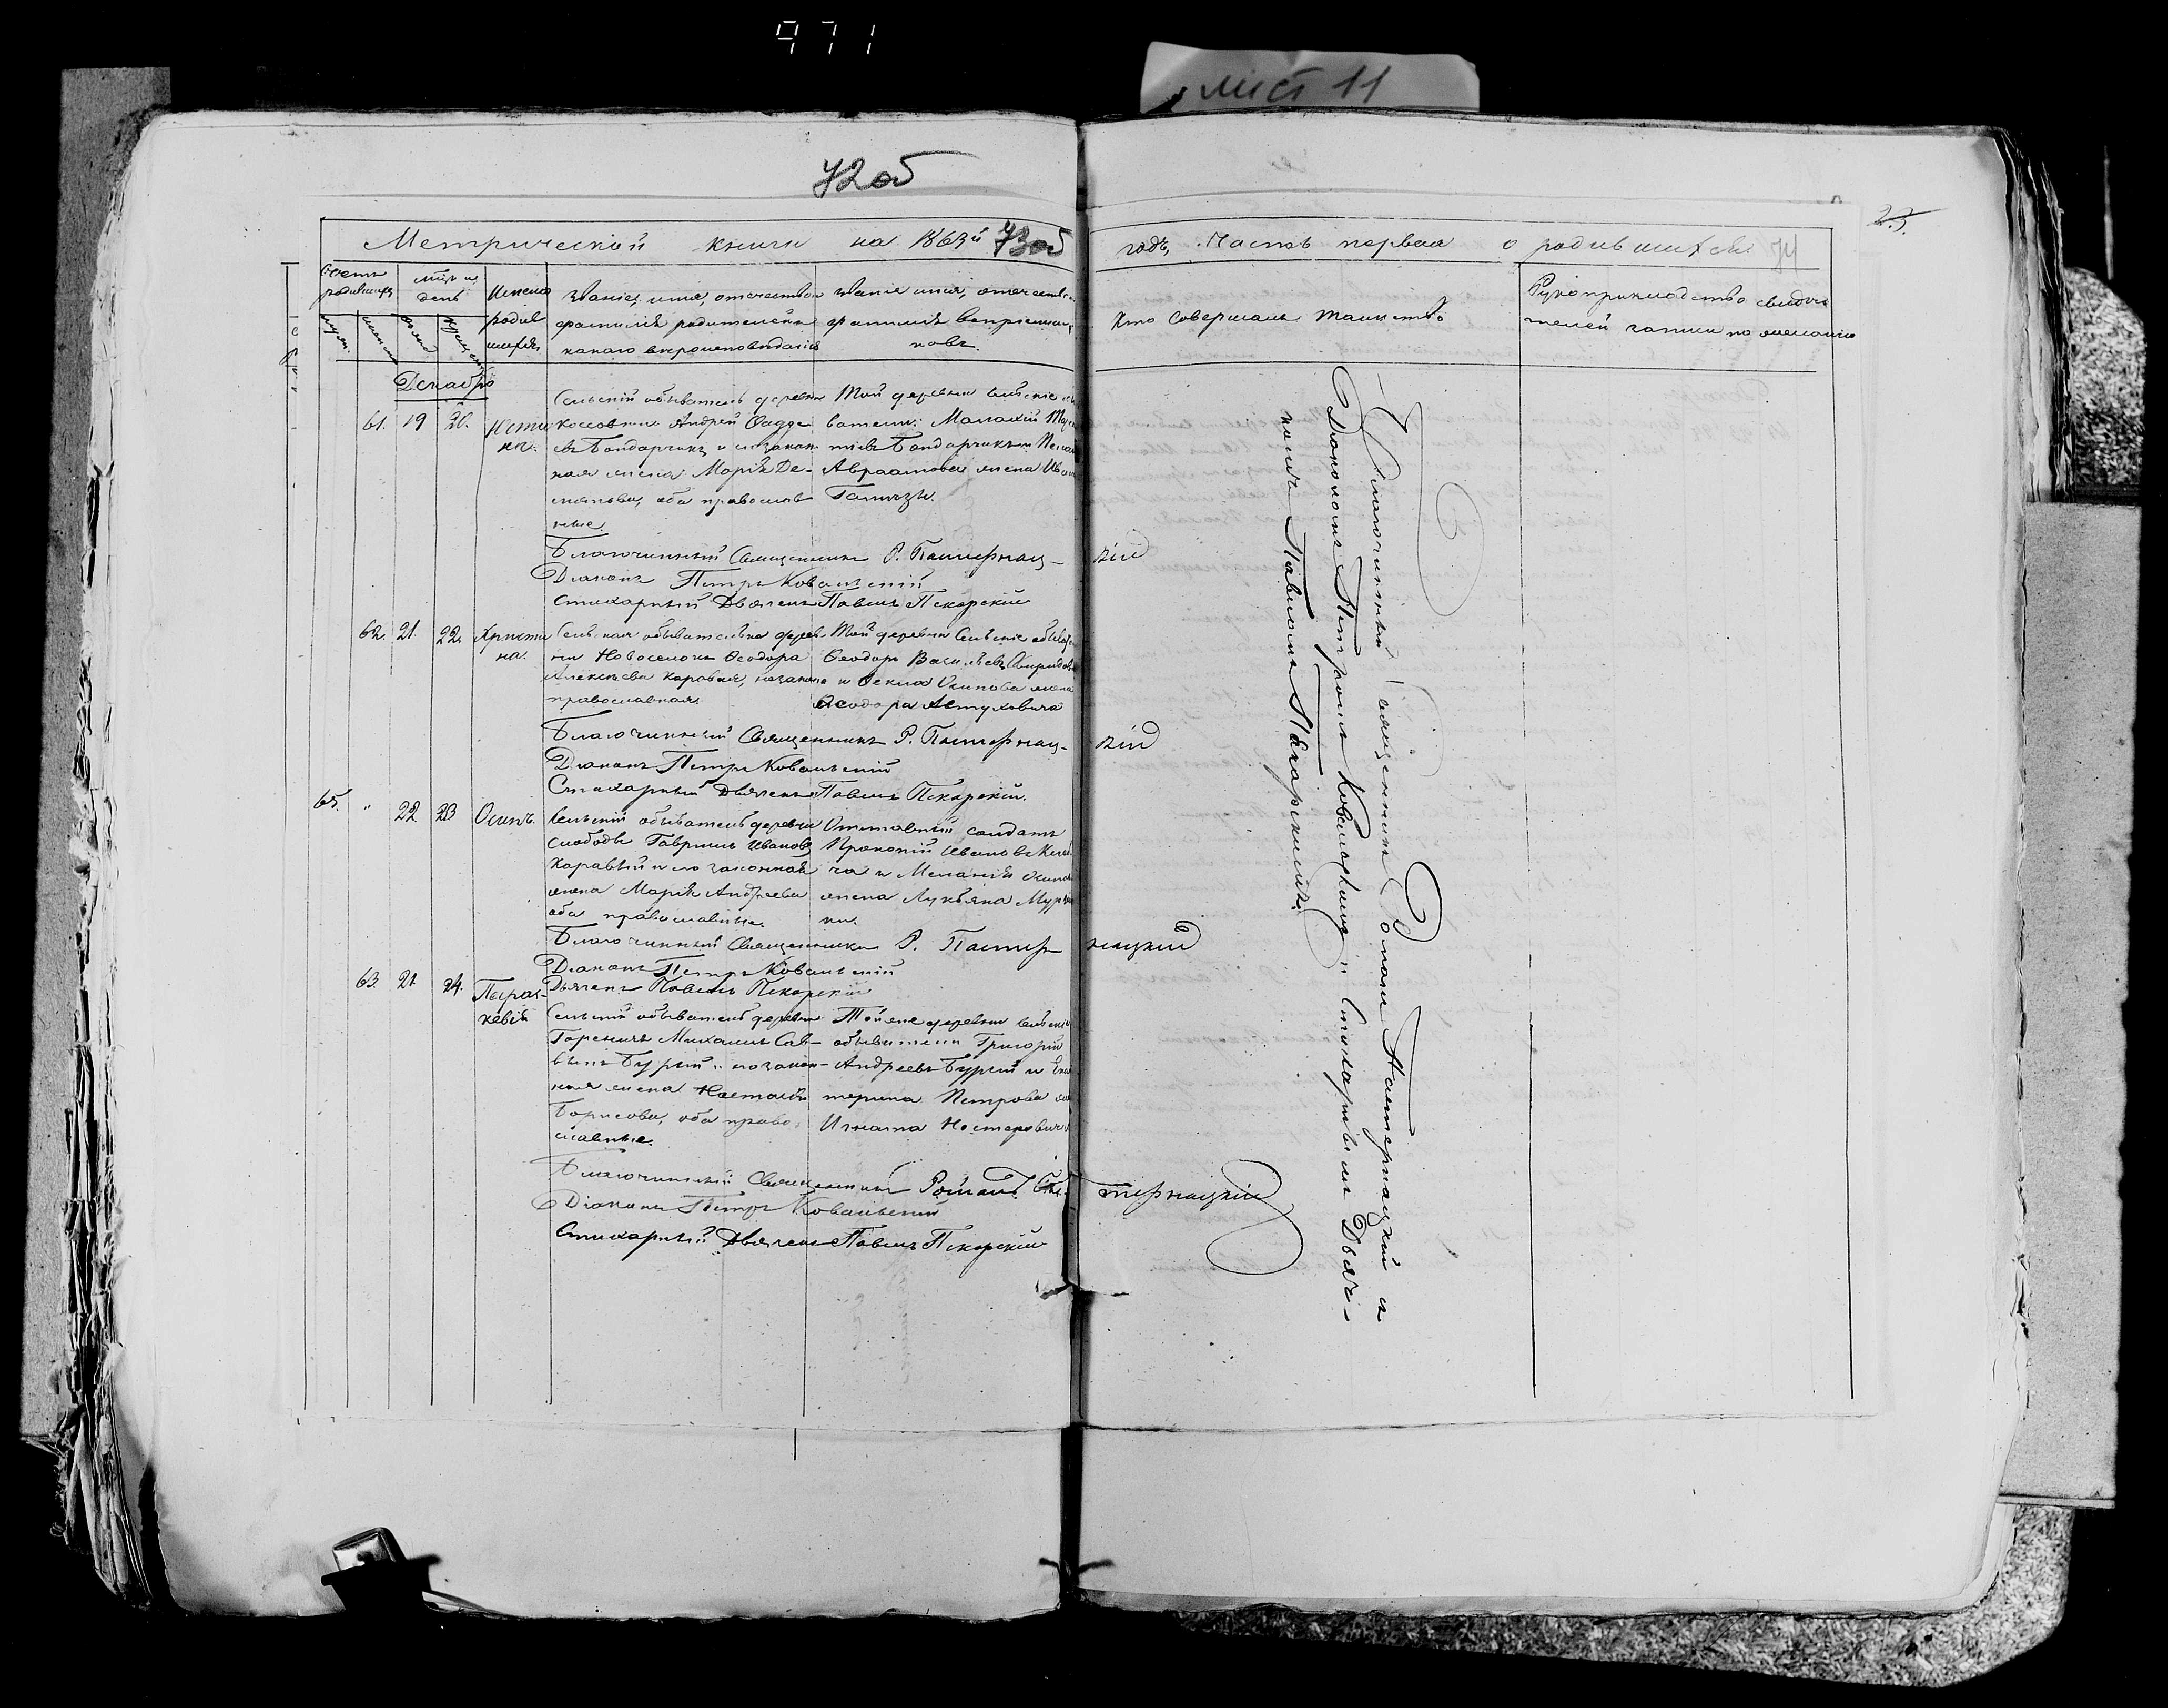 971
лист 11
72об
23.
Метрической книги на 1863й 73об годъ, Часть первая о родившихся 74
Счетъ родившихся
мѣц и день
Имена родившихся
Званіе, имя, отечество и фамилія родителей и какого вѣроисповѣданія
Званіе имя, отечество фамилія воспріемниковъ.
Кто совершалъ таинство
Рукоприкладство свидѣтелей записи по желанію
Декабрь
61. 19 20.
Сельскій обыватель деревни
Андрей Фадде
евъ Бондарчикъ и его закон
ная жена Марія Де-
ментьева, оба православ
ные.
Той деревни сельскіе
ватели: Малахій
тіевъ Бондарчикъ и
Авраамова жена
Благочинный Священникъ Р. Пастернац-кій
Діаконъ Петръ Ковальскій
Стихарный Дьячекъ Павелъ Пекарскій
62. 21. 22. Христи
на.
Сельская обывателька дерев
ни Новоселокъ Феодора
Алексѣева Каравая, незаконно
православная.
Той деревни Сельскіе обыва
Феодоръ Васильевъ
и Фекла Осипова жена
Феодора
Благочинный Священникъ Р. Пастернац-кій
Діаконъ Петръ Ковальскій
Стихарный Дьячекъ Павелъ Пекарскій.
65. " 22 23 Осипъ.
Сельскій обыватель деревни
Слободы Гавріилъ Ивановъ
Каравай и его законная
жена Марія Андреева
оба православные.
Отставный солдатъ
Прокопій Ивановъ
ча и Меланія Осипова
жена Лукьяна
Благочинный Священникъ Р. Пастернацкій
Діаконъ Петръ Ковальскій
Дьячекъ Павелъ Пекарскій
63. 21 24. Параскевія
Сельскій обыватель деревни
Горничъ Михаилъ Сав-
вынъ Бурый и его закон-
ная жена Настасія
Борисова, оба право
славные.
Той же деревни сельскіе
обыватели Григорій
Андреевъ Бурый и Ека
терина Петрова
Игната Нестеровича
Благочинный Священникъ Романъ Пастернацкій
Діаконъ Петръ Ковальскій
Стихарный Дьячекъ Павелъ Пекарскій
Благочинный Священникъ Романъ Пастернацкій и
Діакономъ Петромъ Ковальскимъ и Стихарнымъ Дьяч-
комъ Павломъ Пекарскимъ.